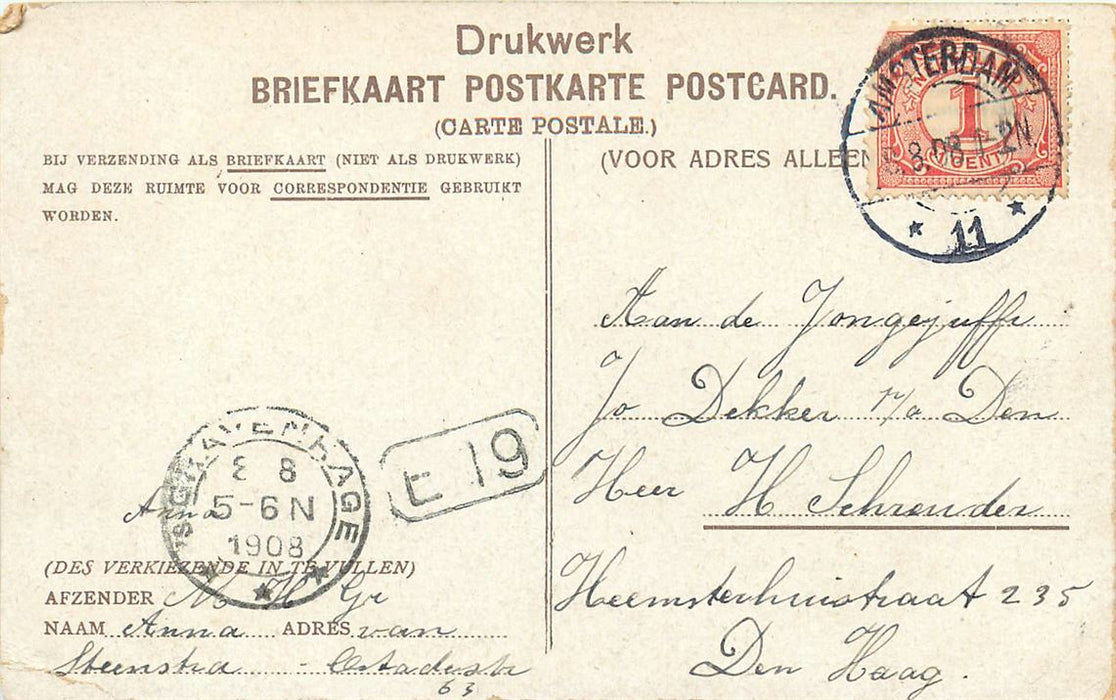 Drukwerk
BRIEFKAART POSTKARTE POSTCARD.
(CARTE POSTALE.)
BIJ VERZENDING ALS BRIEFKAART (NIET ALS DRUKWERK)
MAG DEZE RUIMTE VOOR CORRESPONDENTIE GEBRUIKT
WORDEN.
(VOOR ADRES ALLEEN
AMSTERDAM
1
CENT
8.08 1-2N
11
Aan de Jongejuffr
Jo Dekker p/a Den
Heer H Schreuder
Heemsterhuistraat 235
Den Haag.
'S-GRAVENHAGE
8 8
5-6 N
1908
E 19
Anna
(DES VERKIEZENDE IN TE VULLEN)
AFZENDER M H Gr
NAAM Anna ADRES van
Steenstra - Ostadestr
63